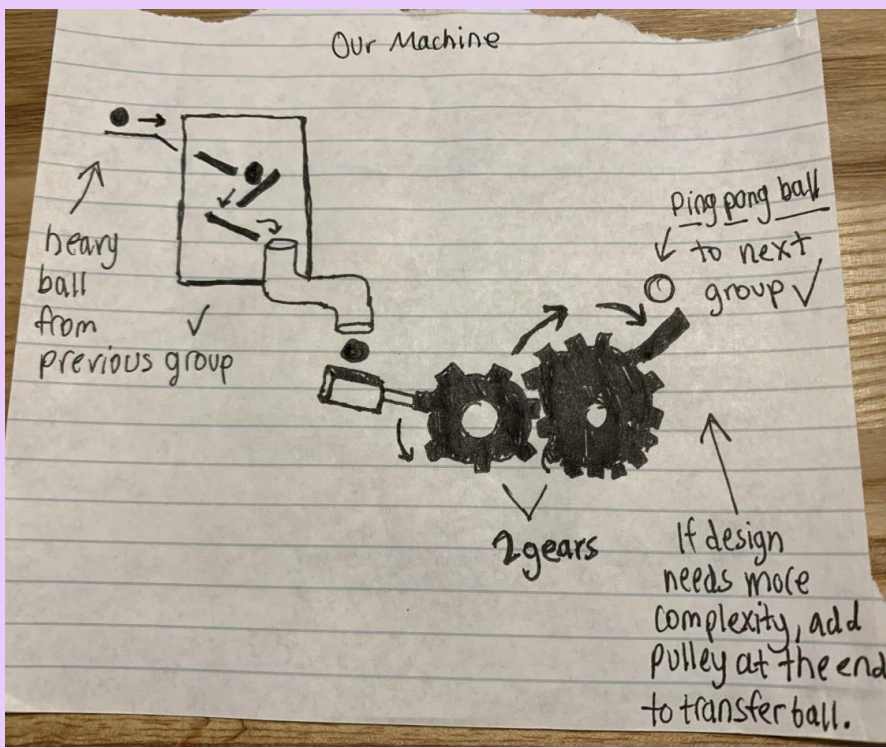 Our Machine
heavy
ball
from
previous group
Ping pong ball
to next
group
2 gears
If design
needs more
complexity, add
pulley at the end
to transfer ball.